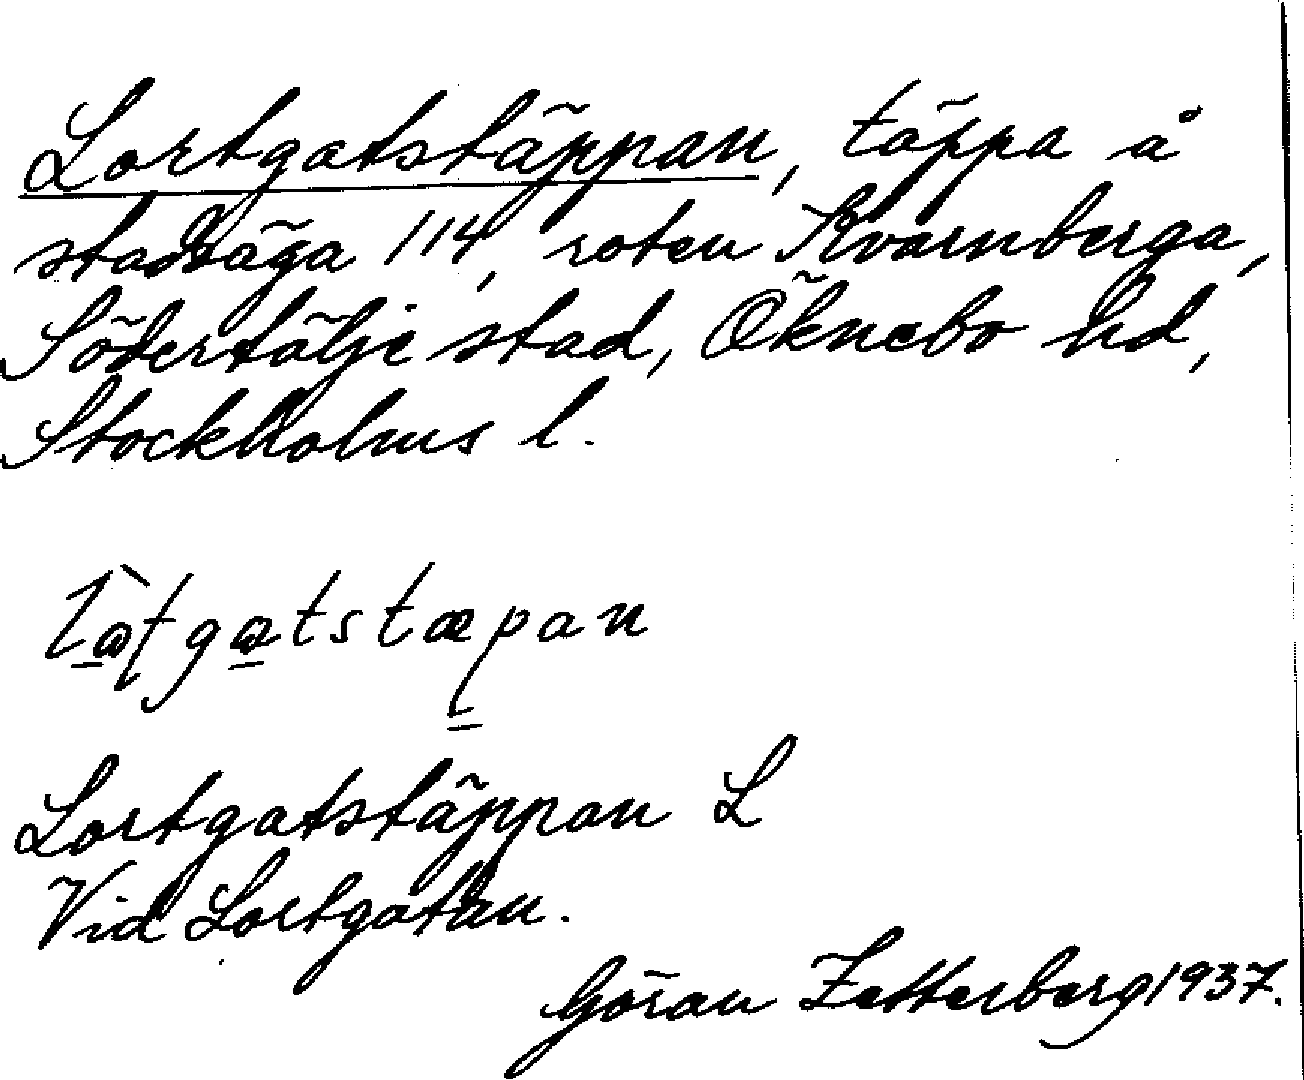 Lortgatstäppan, täppa å
stadsäga 114, roten Kvarnberga,
Södertälje stad, Öknebo hd,
Stockholms l.
Lortgatstäppan L
Vid Lortgatan.
Göran Zetterberg 1937.